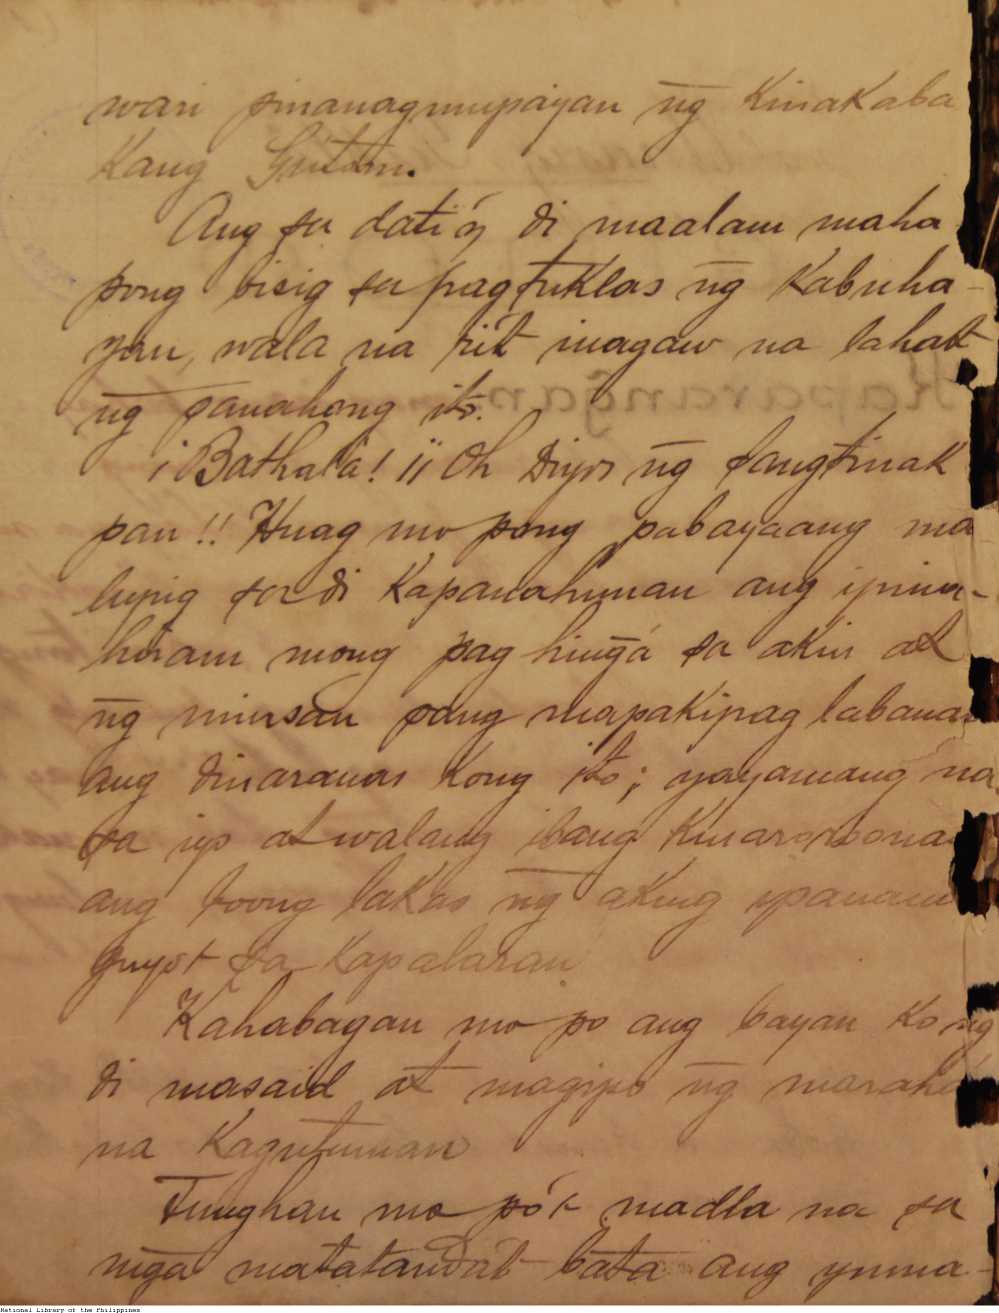 wari pinanagmupayan n̄g KinaKaba
Kang Gútom.
Ang sa dati'y di maalam maha
pong bisig sa pagtuKlas n̄g Kabuha-
yan, wala na rit inagaw na lahat
n̄g panahong ito.
¡Bathala! ¡¡Oh Diyos n̄g SangtinaK
pan!! Huag mo pong pabayaang ma
lupig sa di Kapanahunan ang ipina-
hiram mong pag hin̄gá sa akin at
n̄g minsan pang mapaKipag labanan
ang dinaranas Kong ito; yayamang na
sa iyo at walang ibang Kinaroroonan
ang boong laKas n̄g aKing
sa Kapalaran
Kahabagan mo po ang bayan Ko ng
di masaid at magipo n̄g marahás
na Kagutuman
Tunghan mo pó't madla na sa
mg̃a matatanda't bata ang
Kaparan̄gan
National Library of the Philippines